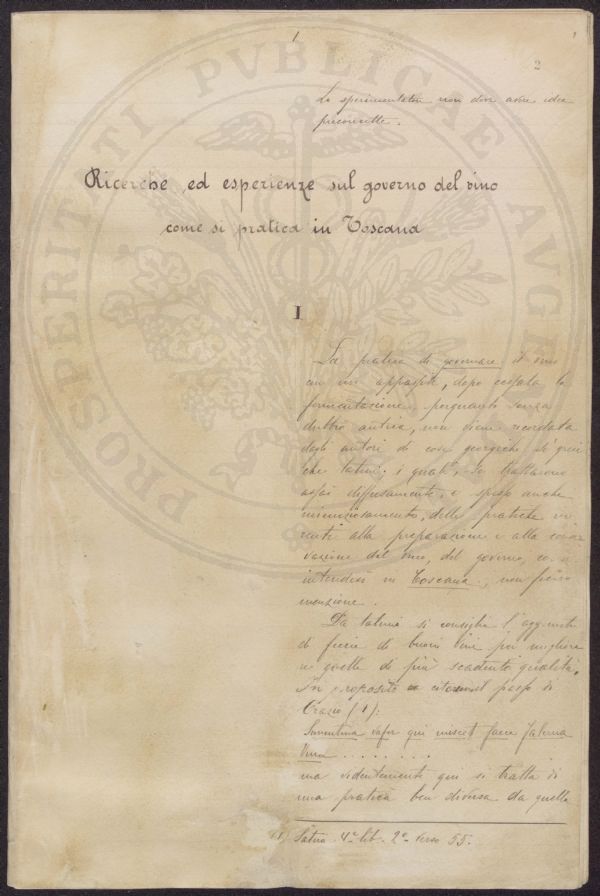 1
2
1
Lo sperimentatore non deve avere idee
preconcette.
Ricerche ed esperienze sul governo del vino
come si pratica in Toscana
I
La pratica di governare il vino
con uva appassita, dopo cessata la
fermentazione, perquanto senza
dubbio antica, non viene ricordata
dagli autori di cose georgiche sì greci
che latini; i quali, se trattarono
assai diffusamente, e spesso anche
minuziosamente, delle pratiche ine
renti alla preparazione e alla conser
vazione del vino, del governo, come
intendesi in Toscana, non fecero
menzione.
Da taluni si consiglia l'aggiunta
di feccie di buoni vini per migliora
re quelle di più scadente qualità.
In proposito citerem il passo di
Orazio (1):
Surrentina vafer qui miscet faece Falerna
Vina . . . . . . .
ma evidentemente qui si tratta di
una pratica ben diversa da quella
(1) Satira 4ª lib. 2º verso 55.
PROSPERITATI PVBLICAE AVGENDAE